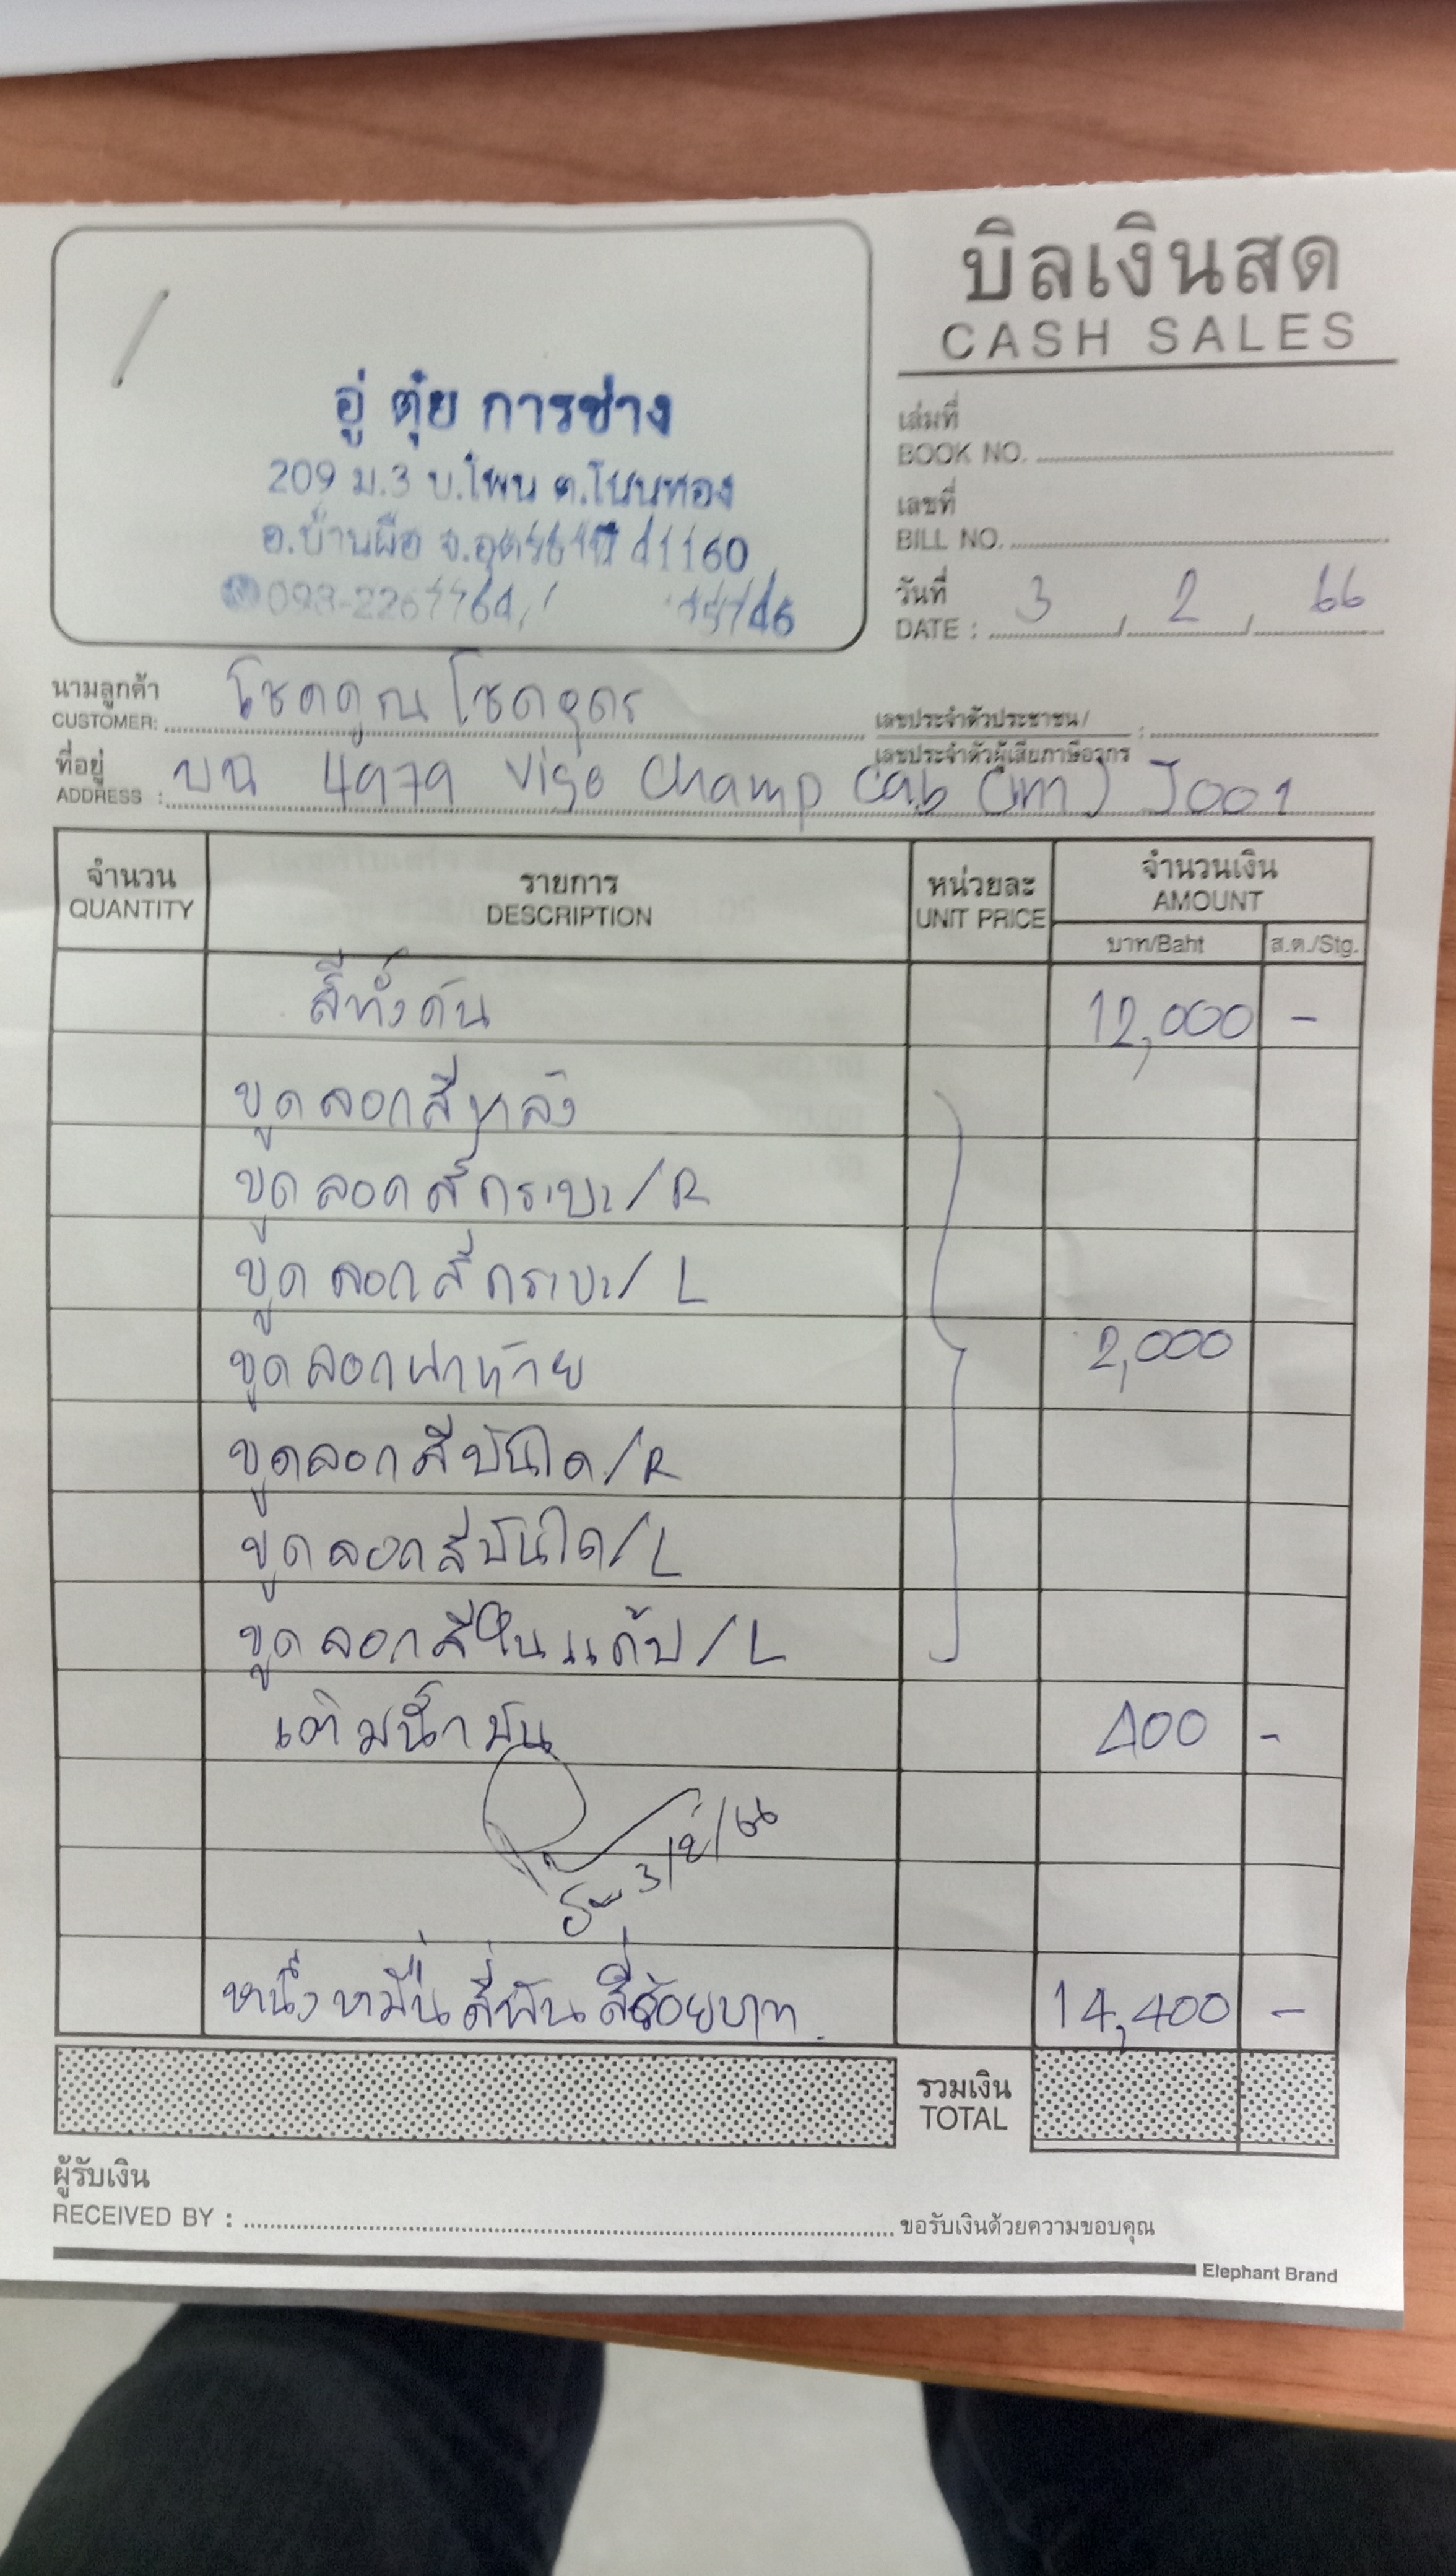 บิลเงินสด
CASH SALES
อู่ ตุ๋ย การช่าง
209 ม.3 บ.โพน ต.โนนทอง
อ.บ้านผือ จ.อุดรธานี 41160
เล่มที่
BOOK NO.
เลขที่
BILL NO.
วันที่
DATE : 3 / 2 / 66
นามลูกค้า
CUSTOMER: โชคคูณโชคอุดร
เลขประจำตัวประชาชน /
เลขประจำตัวผู้เสียภาษีอากร :
ที่อยู่
ADDRESS : บน 4979 Vigo Champ Cab J001
จำนวน รายการ หน่วยละ จำนวนเงิน
QUANTITY DESCRIPTION UNIT PRICE AMOUNT
บาท/Baht ส.ต./Stg.
สีทั้งคัน 12,000 -
ขูดลอกสีหลัง
ขูดลอกสีกระบะ/R
ขูดลอกสีกระบะ/L
ขูดลอกฝาท้าย 2,000
ขูดลอกสีบันได/R
ขูดลอกสีบันได/L
ขูดลอกสีในแค๊บ/L
เติมน้ำมัน 400 -
3/2/66
หนึ่งหมื่นสี่พันสี่ร้อยบาท 14,400 -
รวมเงิน
TOTAL
ผู้รับเงิน
RECEIVED BY : ขอรับเงินด้วยความขอบคุณ
Elephant Brand